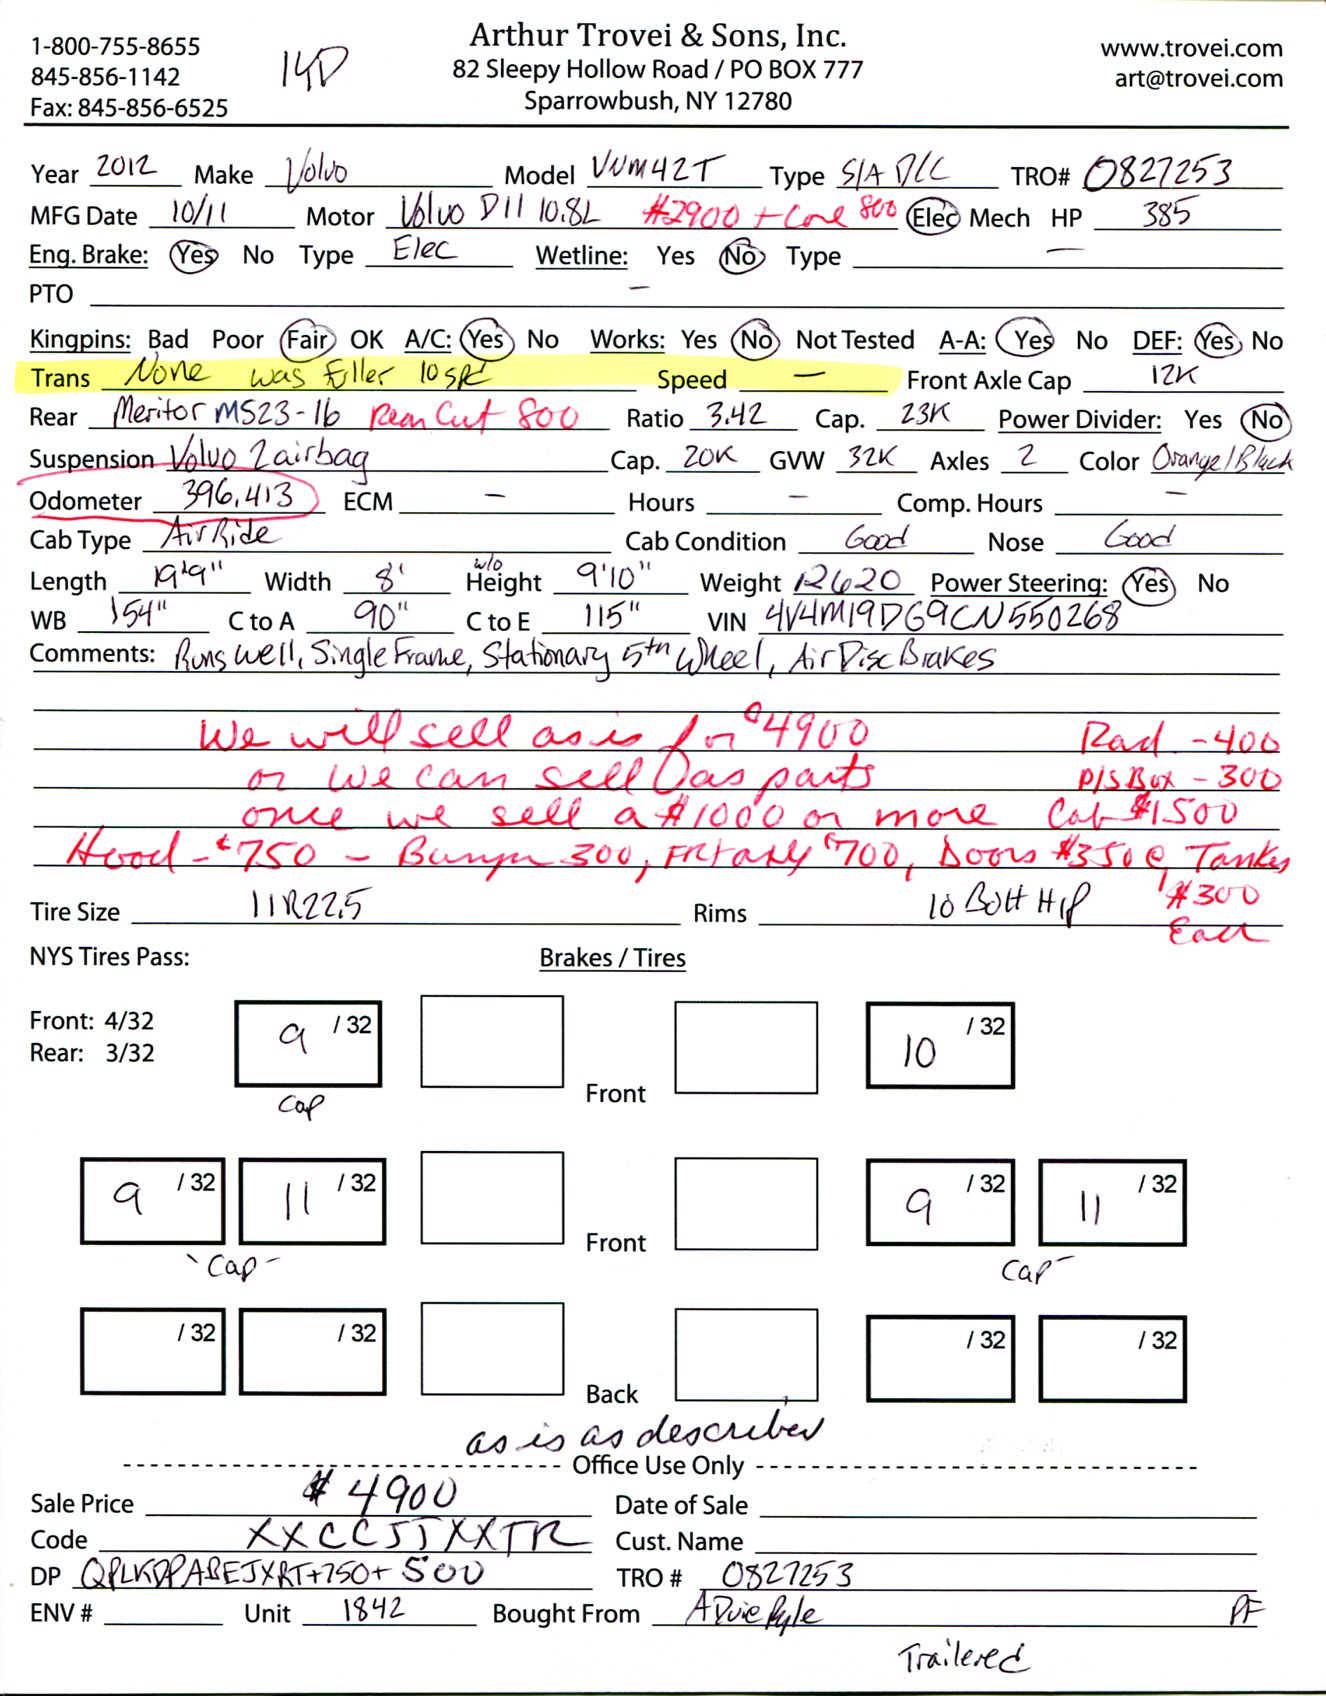 Arthur Trovei & Sons, Inc.
1-800-755-8655 82 Sleepy Hollow Road / PO BOX 777 www.trovei.com
845-856-1142 14D Sparrowbush, NY 12780 art@trovei.com
Fax: 845-856-6525
Year 2012 Make Volvo Model VNM42T Type S/A D/C TRO# 0827253
MFG Date 10/11 Motor Volvo D11 10.8L #2900 + Core 800 Elec Mech HP 385
Eng. Brake: Yes No Type Elec Wetline: Yes No Type –
PTO –
Kingpins: Bad Poor Fair OK A/C: Yes No Works: Yes No Not Tested A-A: Yes No DEF: Yes No
Trans None was Fuller 10 SPD Speed – Front Axle Cap 12K
Rear Meritor MS23-16 Rear Cut 800 Ratio 3.42 Cap. 23K Power Divider: Yes No
Suspension Volvo 2 airbag Cap. 20K GVW 32K Axles 2 Color Orange/Black
Odometer 396,413 ECM – Hours – Comp. Hours –
Cab Type Air Ride Cab Condition Good Nose Good
Length 19'9" Width 8' w/o Height 9'10" Weight 12620 Power Steering: Yes No
WB 154" C to A 90" C to E 115" VIN 4V4M19DG9CN550268
Comments: Runs well, Single Frame, Stationary 5th Wheel, Air Disc Brakes
We will sell as is for $4900 Rad - 400
or we can sell as parts P/S Box - 300
once we sell a $1000 or more Cab $1500
Hood - $750 - Bumper 300, FRT axle $700, Doors $350 e, Tanks
$300
Each
Tire Size 11R22.5 Rims 10 Bolt H/P
NYS Tires Pass: Brakes / Tires
Front: 4/32 9 /32 10 /32
Rear: 3/32
Front
Cap
9 /32 11 /32 9 /32 11 /32
Front
Cap Cap
/ 32 / 32 / 32 / 32
Back
as is as described
Office Use Only
Sale Price $4900 Date of Sale
Code XXCCJJXXTR Cust. Name
DP QPLKDPABEJXRT+750+500 TRO # 0827253
ENV # Unit 1842 Bought From A Duie Pyle PF
Trailered